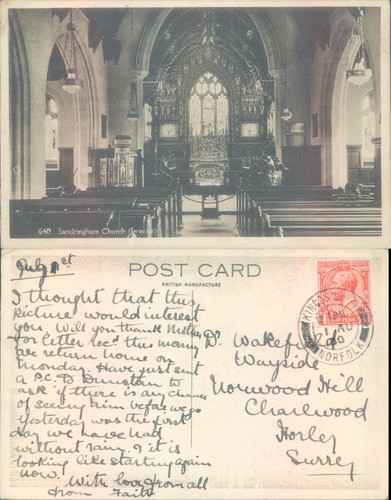 640 Sandringham Church (Interior)
July 1st
POST CARD
BRITISH MANUFACTURE
I thought that this
picture would interest
you. Will you thank Mother
for letter recd this morn.
we return home on
Monday. Have just sent
a P.C. to Dunstan to
ask if there is any chance
of seeing him before we go
yesterday was the first
day we have had
without rain, & it is
looking like starting again
now. With love from all
from Faith
Dr. Wakef
Wayside
Norwood Hill
Charlwood
Horley
Surrey
KING'S
1 AU
NORFOLK